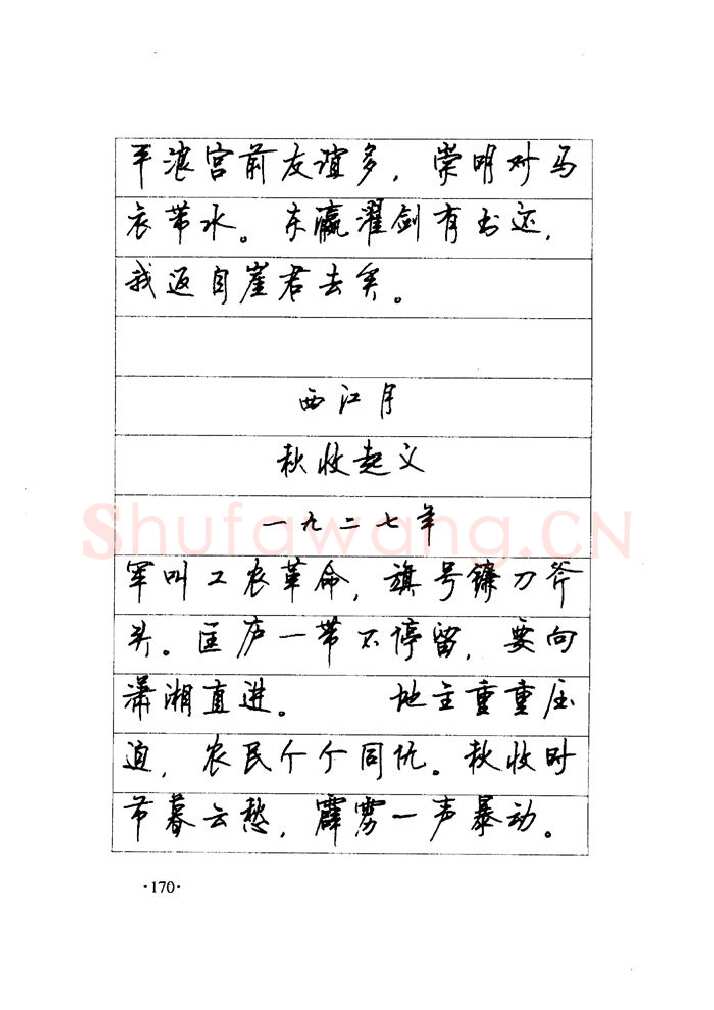 平浪宫前友谊多，崇明对马
衣带水。东瀛濯剑有书还，
我返自崖君去矣。
西江月
秋收起义
一九二七年
军叫工农革命，旗号镰刀斧
头。匡庐一带不停留，要向
潇湘直进。 地主重重压
迫，农民个个同仇。秋收时
节暮云愁，霹雳一声暴动。
Shufawang.CN
·170·